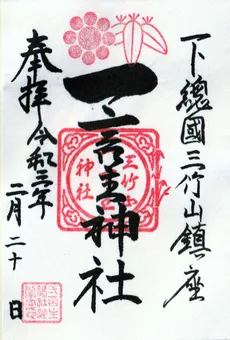 下總國三竹山鎮座
一言主神社
奉拝令和三年
二月二十日
三竹山
神社